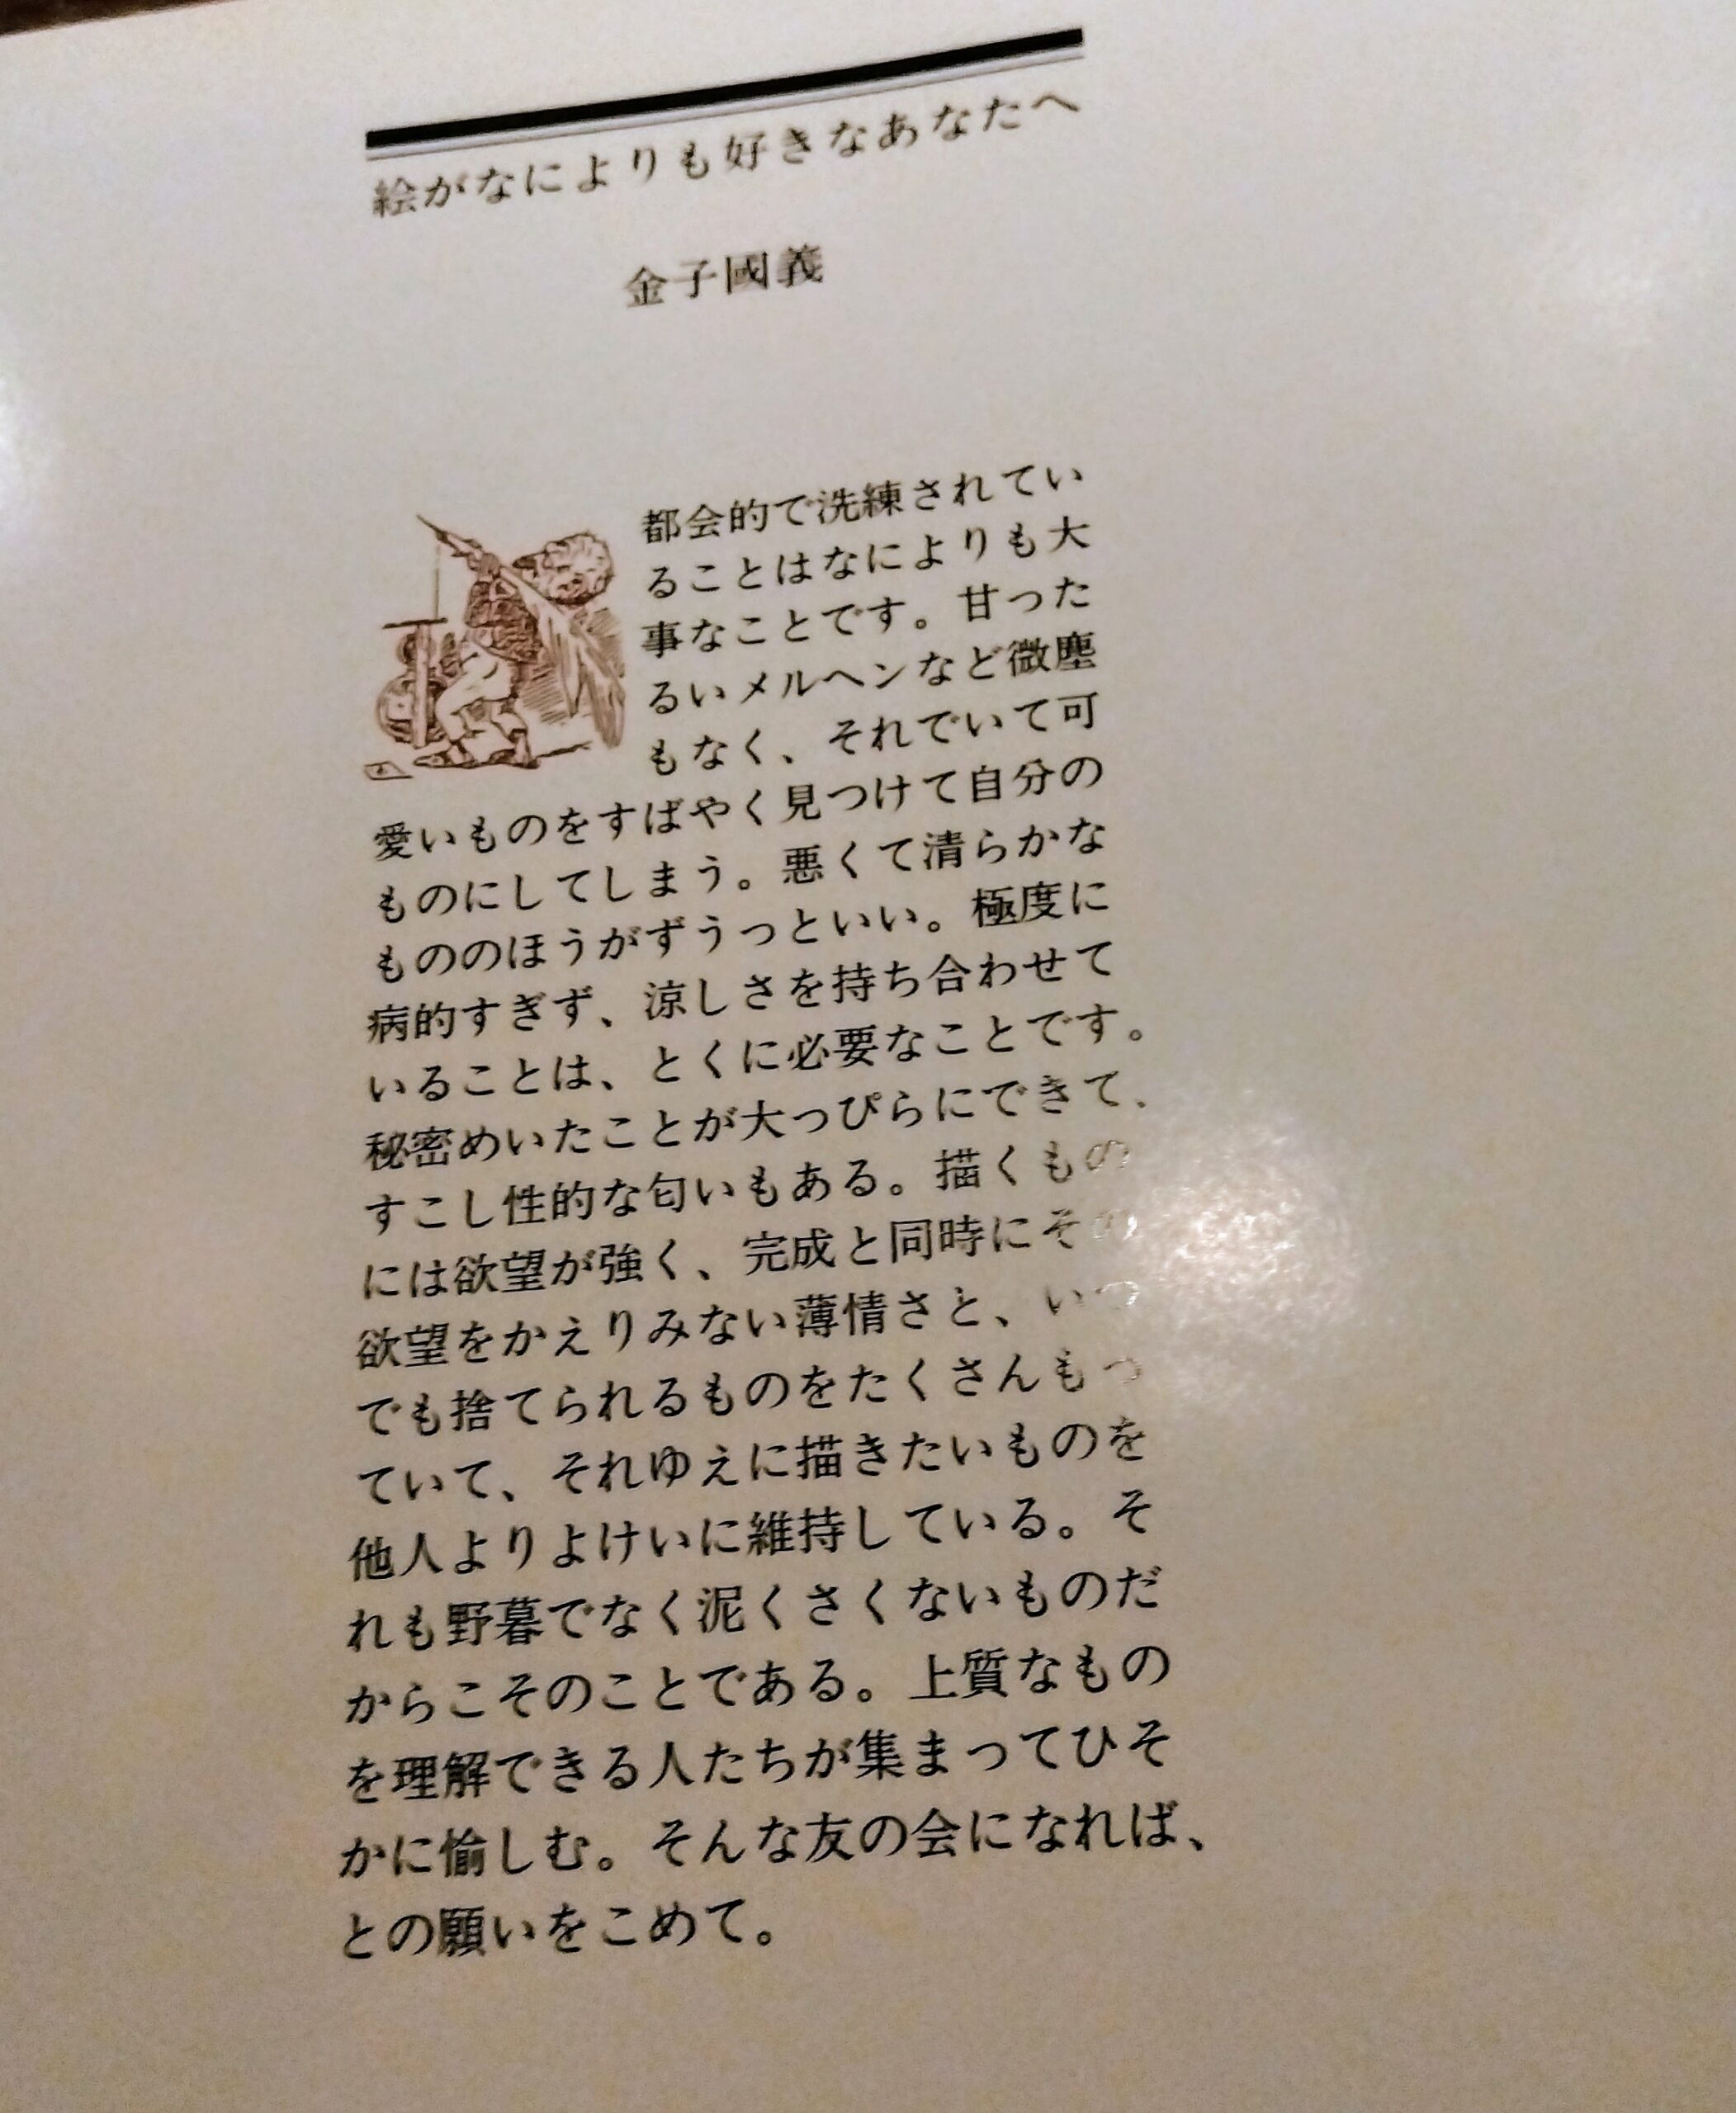 絵がなによりも好きなあなたへ
金子國義
都会的で洗練されてい
ることはなによりも大
事なことです。甘った
るいメルヘンなど微塵
もなく、それでいて可
愛いものをすばやく見つけて自分の
ものにしてしまう。悪くて清らかな
もののほうがずうっといい。極度に
病的すぎず、涼しさを持ち合わせて
いることは、とくに必要なことです。
秘密めいたことが大っぴらにできて、
すこし性的な匂いもある。描くもの
には欲望が強く、完成と同時にその
欲望をかえりみない薄情さと、いつ
でも捨てられるものをたくさんもっ
ていて、それゆえに描きたいものを
他人よりよけいに維持している。そ
れも野暮でなく泥くさくないものだ
からこそのことである。上質なもの
を理解できる人たちが集まってひそ
かに愉しむ。そんな友の会になれば、
との願いをこめて。